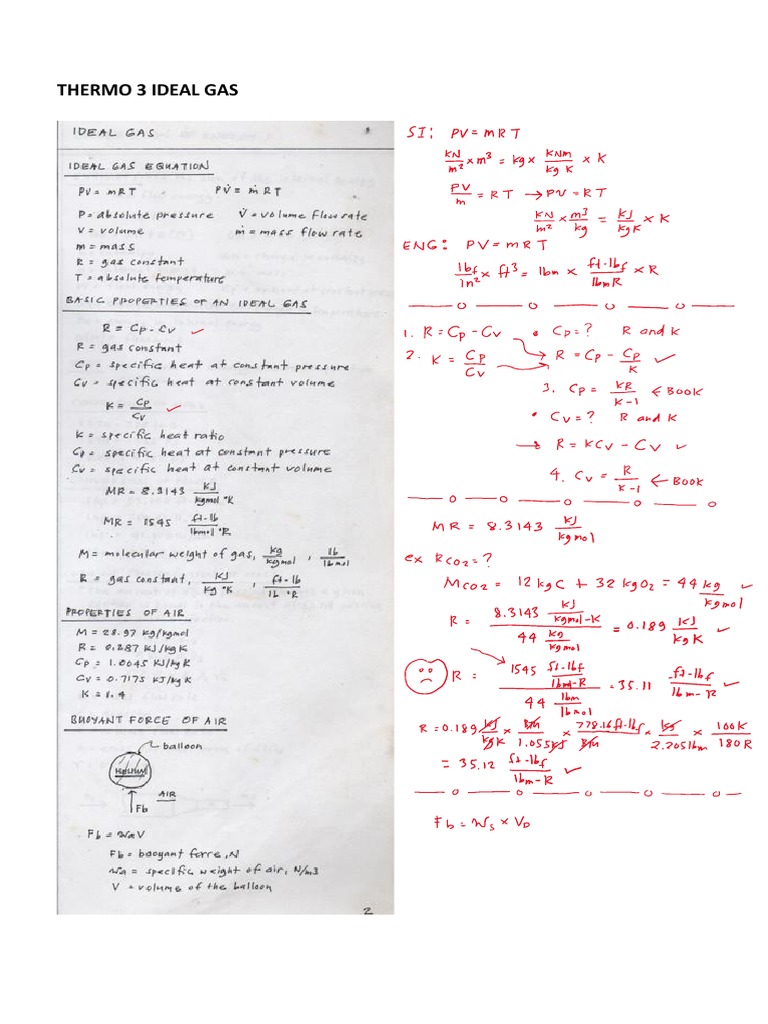 THERMO 3 IDEAL GAS
IDEAL GAS 1
IDEAL GAS EQUATION
PV = mRT PV̇ = ṁRT
P = absolute pressure V̇ = volume flow rate
V = volume ṁ = mass flow rate
m = mass
R = gas constant
T = absolute temperature
BASIC PROPERTIES OF AN IDEAL GAS
R = Cp - Cv ✓
R = gas constant
Cp = specific heat at constant pressure
Cv = specific heat at constant volume
K = Cp/Cv ✓
K = specific heat ratio
Cp = specific heat at constant pressure
Cv = specific heat at constant volume
MR = 8.3143 KJ/kgmol °K
MR = 1545 ft-lb/lbmol °R
M = molecular weight of gas, kg/kgmol , lb/lbmol
R = gas constant, KJ/kg °K , ft-lb/lb °R
PROPERTIES OF AIR
M = 28.97 kg/kgmol
R = 0.287 KJ/kg K
Cp = 1.0045 KJ/kg K
Cv = 0.7175 KJ/kg K
K = 1.4
BUOYANT FORCE OF AIR
balloon
HELIUM
AIR
Fb
Fb = waV
Fb = buoyant force, N
wa = specific weight of air, N/m3
V = volume of the balloon
2
SI: PV = mRT
KN/m² × m³ = kg × KNm/kg K × K
PV/m = RT → PV = RT
KN/m² × m³/kg = KJ/kgK × K
ENG: PV = mRT
lbf/in² × ft³ = lbm × ft-lbf/lbmR × R
1. R = Cp - Cv • Cp = ? R and K
2. K = Cp/Cv → R = Cp - Cp/K ✓
3. Cp = KR/K-1 ← Book
• Cv = ? R and K
→ R = KCv - Cv ✓
4. Cv = R/K-1 ← Book
MR = 8.3143 KJ/kgmol
ex RCO2 = ?
MCO2 = 12 kgC + 32 kgO2 = 44 kg/kgmol ✓
R = 8.3143 KJ/kgmol-K / 44 kg/kgmol = 0.189 KJ/kgK ✓
R = 1545 ft-lbf/lbm-R / 44 lbm/lbmol = 35.11 ft-lbf/lbm-R ✓
R = 0.189 KJ/kgK × Btu/1.055KJ × 778.16ft-lbf/Btu × kg/2.205lbm × 100K/180R
= 35.12 ft-lbf/lbm-R ✓
Fb = ws × Vb